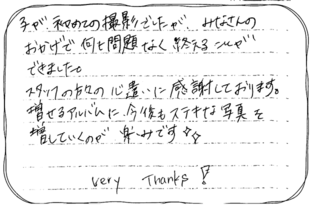 子が初めての撮影でしたが、みなさんの
おかげで何と問題なく終えることが
できました。
スタッフの方々の心遣いに感謝しております。
増せるアルバムに今後もステキな写真を
増していくのが楽しみです☆☆
very Thanks !